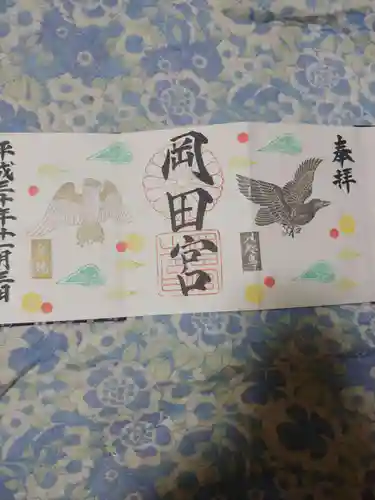 奉拝
八咫烏
岡田宮
平成三十年十一月三日